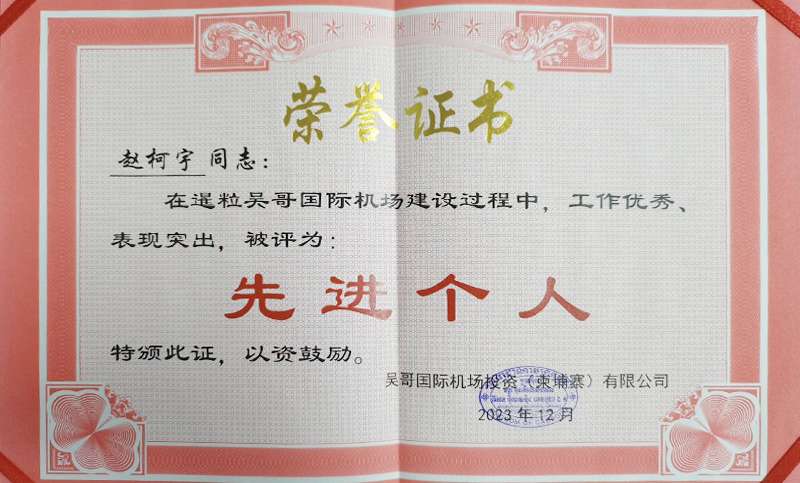 荣誉证书
赵柯宇 同志：
在暹粒吴哥国际机场建设过程中，工作优秀、
表现突出，被评为：
先进个人
特颁此证，以资鼓励。
吴哥国际机场投资（柬埔寨）有限公司
2023年12月